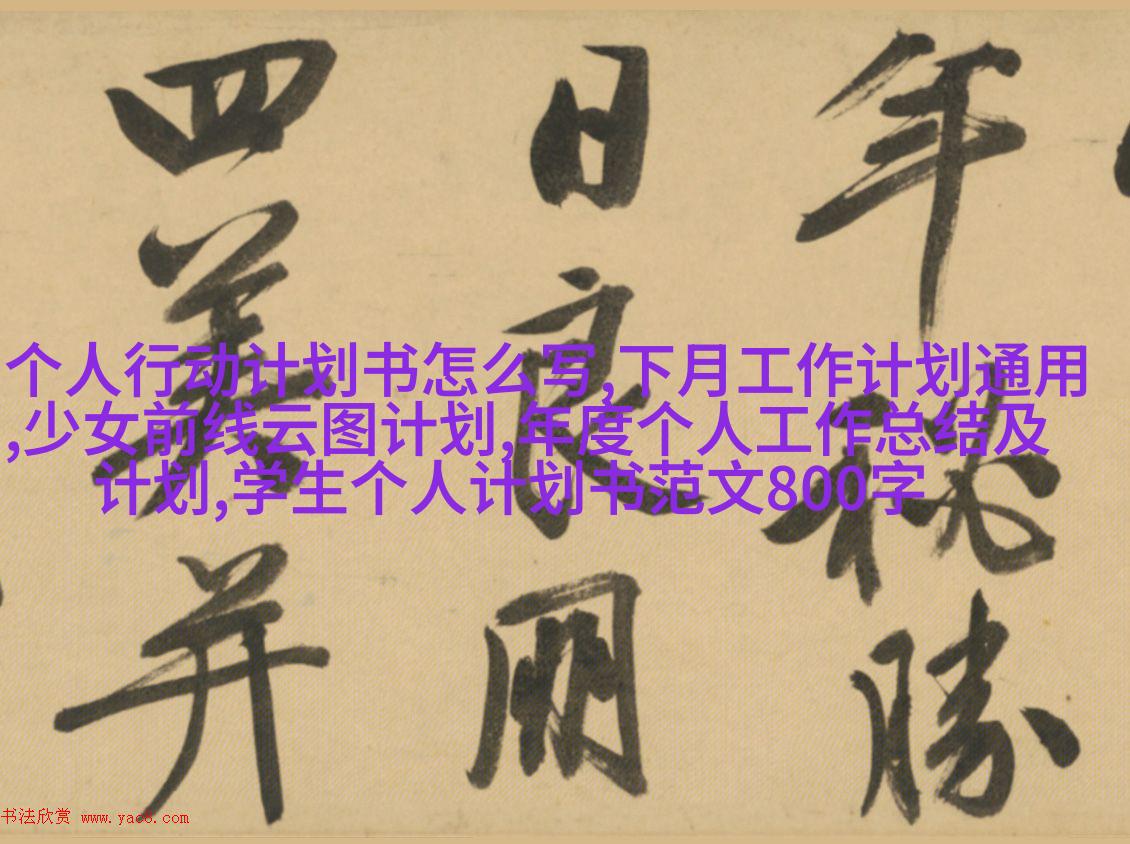 年勝
日良朋
四美并
个人行动计划书怎么写,下月工作计划通用
,少女前线云图计划,年度个人工作总结及
计划,学生个人计划书范文800字
书法欣赏 www.yac8.com